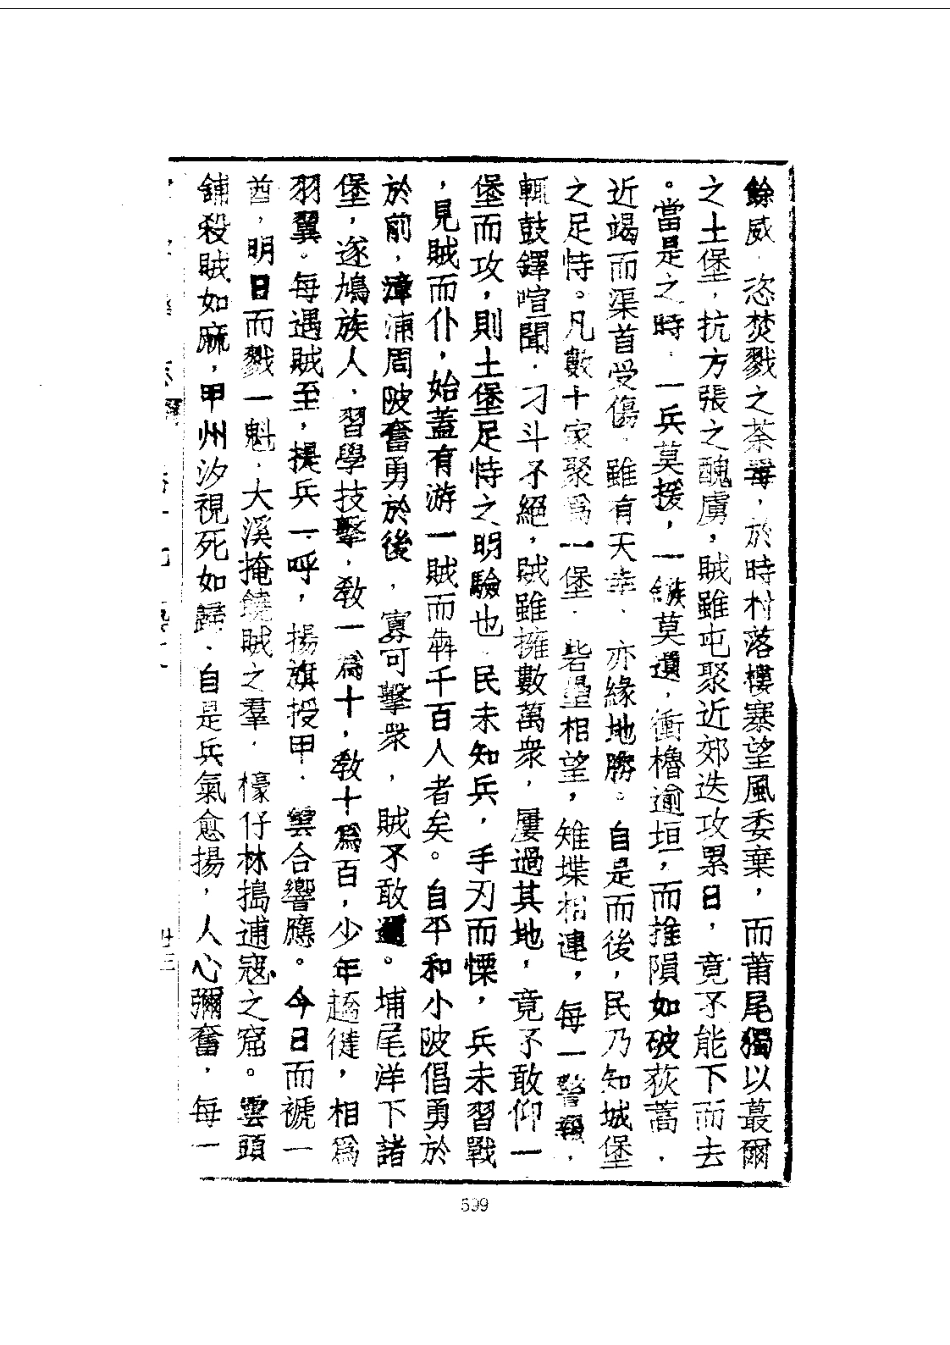 餘威，恣焚戮之荼毒，於時村落樓寨望風委棄，而莆尾獨以蕞爾
之土堡，抗方張之醜虜，賊雖屯聚近郊迭攻累日，竟不能下而去
。當是之時，一兵莫援，一鏃莫遺，衝櫓逾垣，而摧隕如破荻蒿，
近竭而渠首受傷，雖有天幸，亦緣地勝。自是而後，民乃知城堡
之足恃。凡數十家聚爲一堡，砦壘相望，雉堞相連，每一警報，
輒鼓鐸喧聞，刁斗不絕，賊雖擁數萬衆，屢過其地，竟不敢仰一
堡而攻，則土堡足恃之明驗也，民未知兵，手刃而慄，兵未習戰
，見賊而仆，始蓋有游一賊而犇千百人者矣。自平和小陂倡勇於
於前，漳浦周陂奮勇於後，寡可擊衆，賊不敢邇。埔尾洋下諸
堡，遂鳩族人，習學技擊，教一爲十，教十爲百，少年趫健，相爲
羽翼。每遇賊至，提兵一呼，揚旗授甲，雲合響應。今日而褫一
酋，明日而戮一魁，大溪掩饒賊之羣，檺仔林搗逋寇之窟。雲頭
鋪殺賊如麻，甲州汐視死如歸，自是兵氣愈揚，人心彌奮，每一
廿三
599